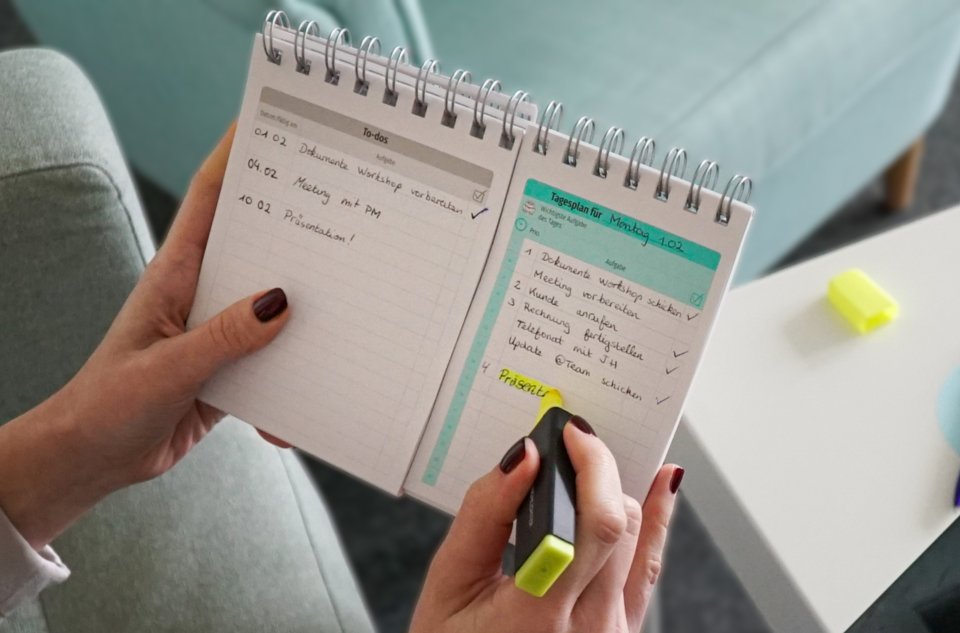 To-dos
Datum/fällig am
Aufgabe
01.02 Dokumente Workshop vorbereiten ✓
04.02 Meeting mit PM
10.02 Präsentation!
Tagesplan für Montag 1.02
Wichtigste Aufgabe
des Tages
Prio
Aufgabe
1 Dokumente Workshop schicken ✓
Meeting vorbereiten
2 Kunde anrufen ✓
3 Rechnung fertigstellen ✓
Telefonat mit JH
Update @Team schicken ✓
4 Präsent